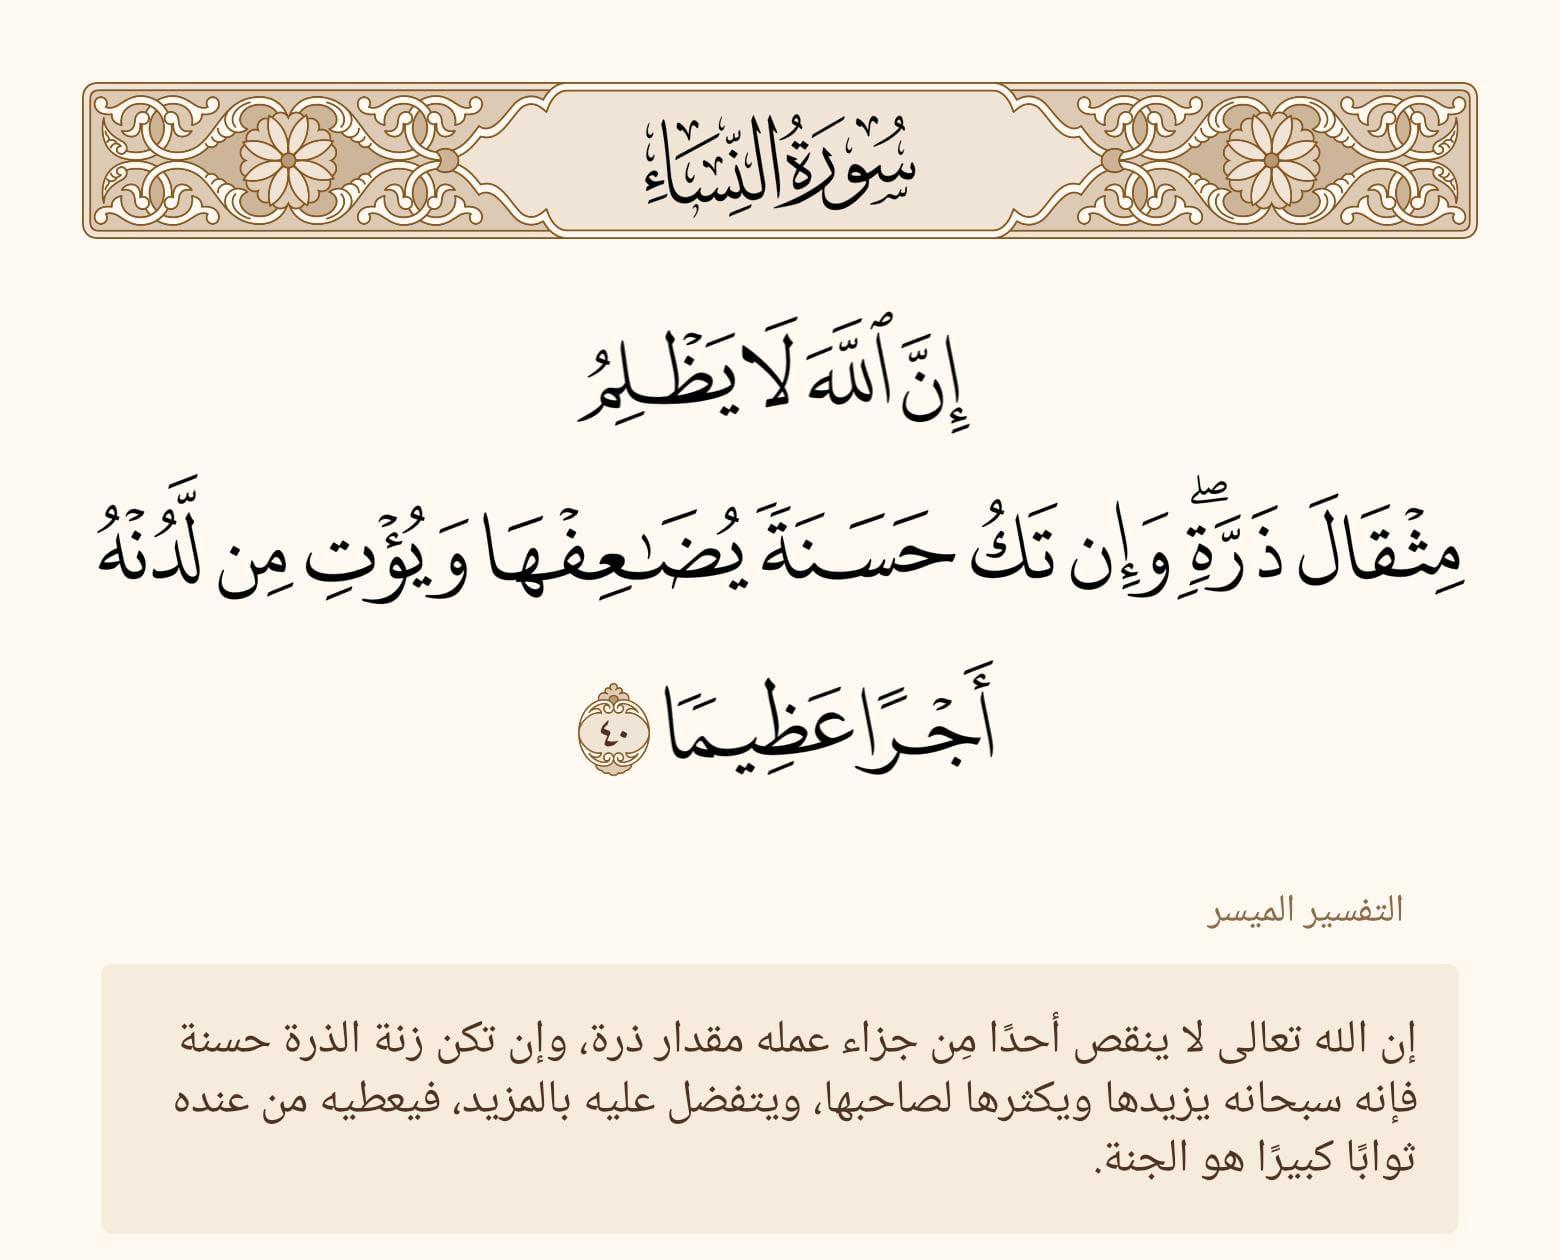 سُورَةُ النِّسَاءِ
إِنَّ ٱللَّهَ لَا يَظۡلِمُ
مِثۡقَالَ ذَرَّةٖۖ وَإِن تَكُ حَسَنَةٗ يُضَٰعِفۡهَا وَيُؤۡتِ مِن لَّدُنۡهُ
أَجۡرًا عَظِيمٗا ٤٠
التفسير الميسر
إن الله تعالى لا ينقص أحدًا مِن جزاء عمله مقدار ذرة، وإن تكن زنة الذرة حسنة
فإنه سبحانه يزيدها ويكثرها لصاحبها، ويتفضل عليه بالمزيد، فيعطيه من عنده
ثوابًا كبيرًا هو الجنة.